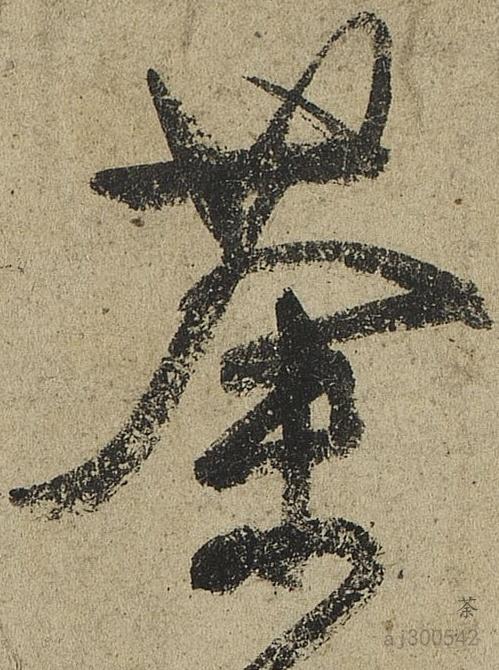 茶
茶
aj300542